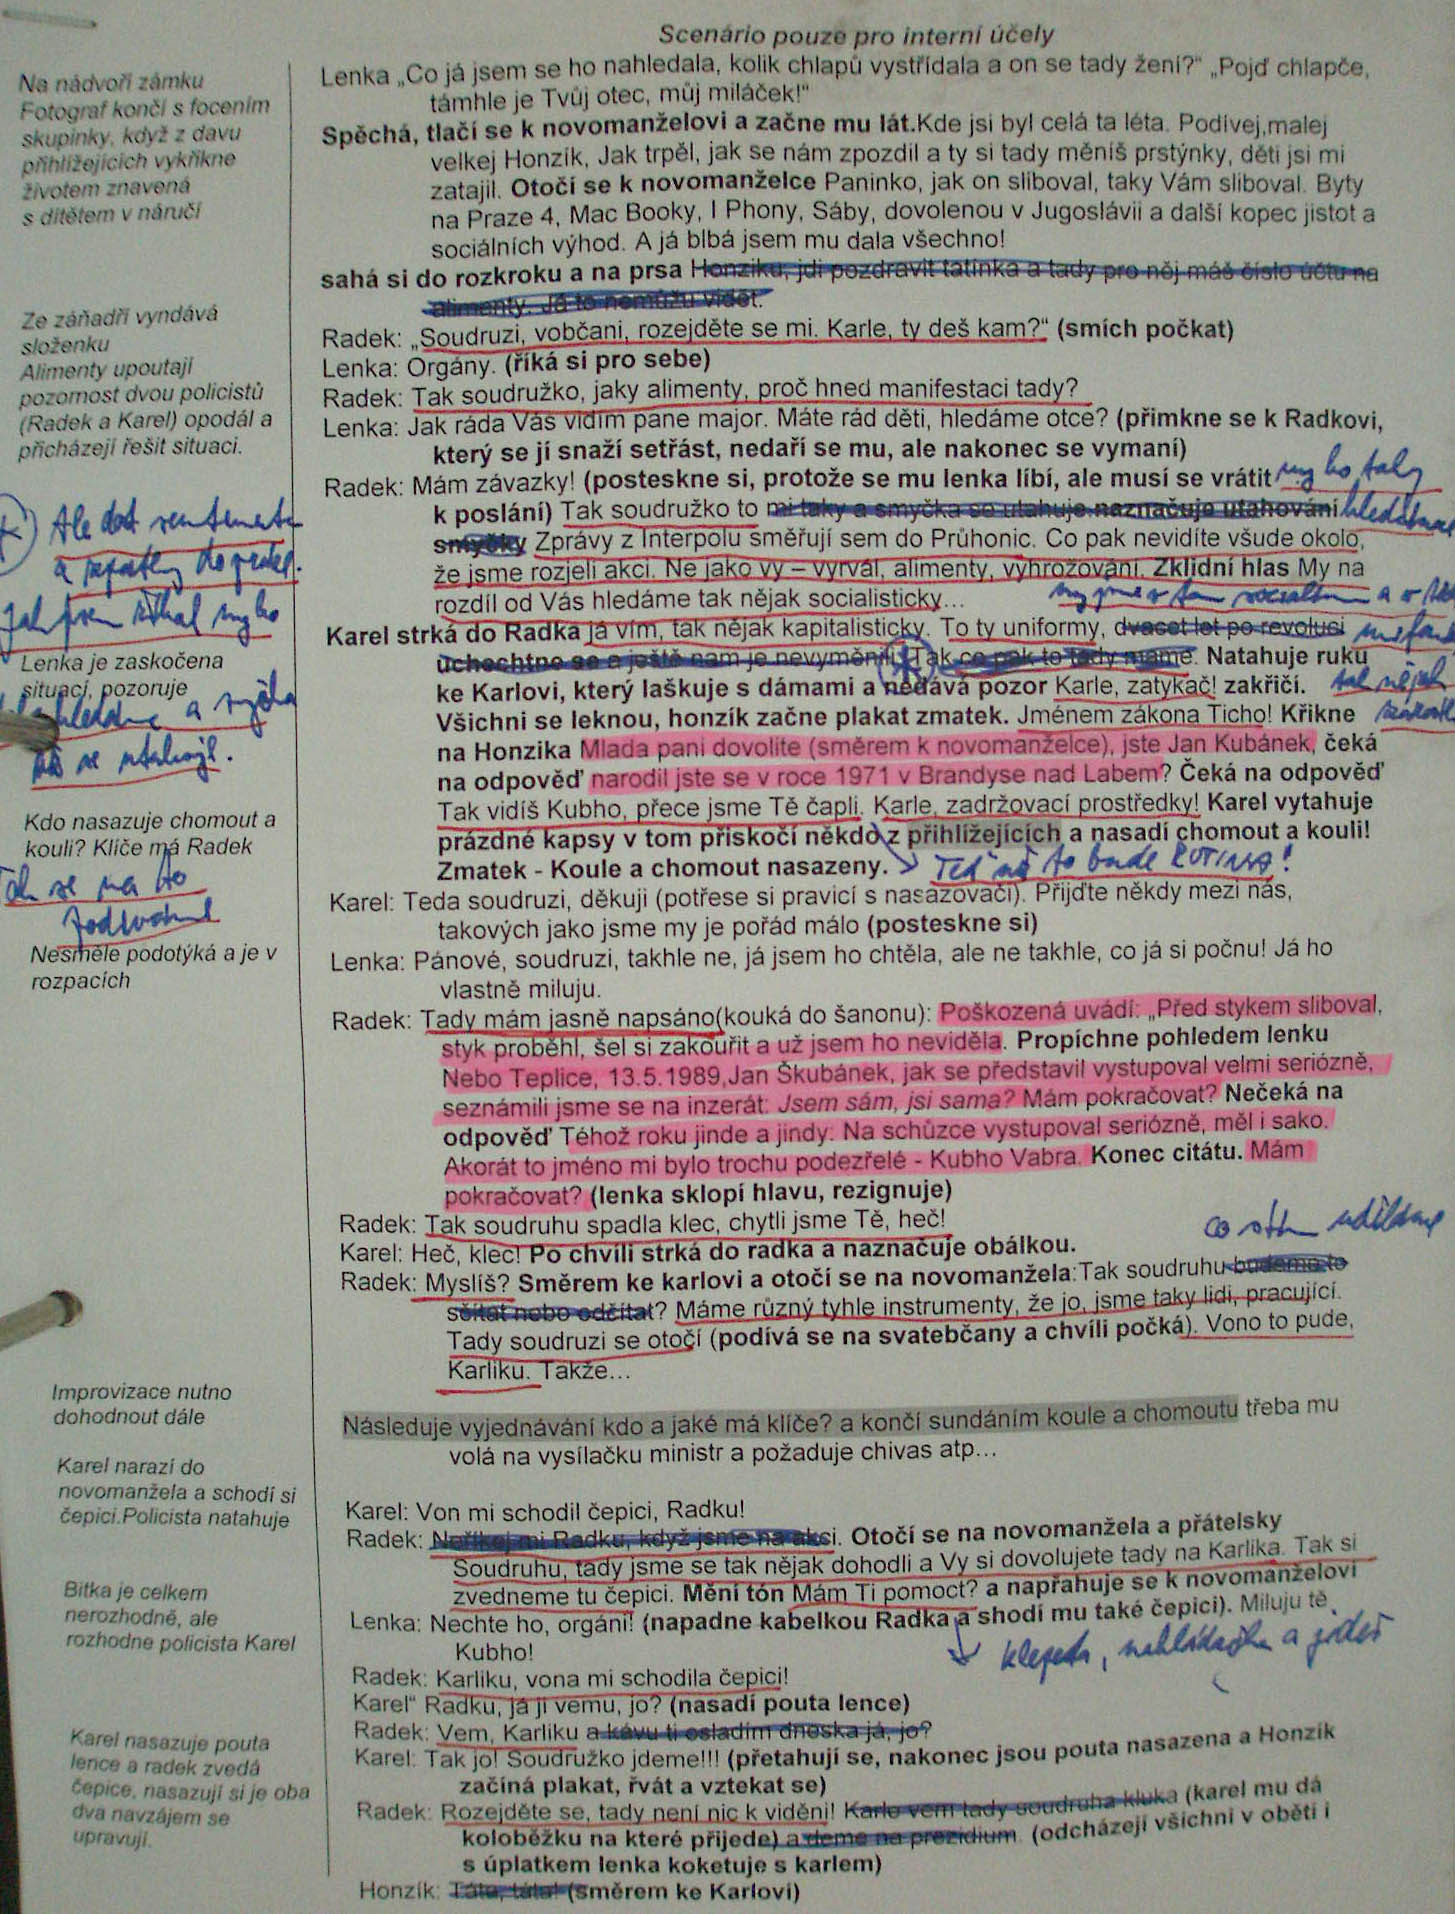 Scenário pouze pro interní účely
Na nádvoří zámku
Fotograf končí s focením
skupinky, když z davu
přihlížejících vykřikne
životem znavená
s dítětem v náručí
Lenka „Co já jsem se ho nahledala, kolik chlapů vystřídala a on se tady žení?“ „Pojď chlapče,
támhle je Tvůj otec, můj miláček!“
Spěchá, tlačí se k novomanželovi a začne mu lát.Kde jsi byl celá ta léta. Podívej,malej
velkej Honzík, Jak trpěl, jak se nám zpozdil a ty si tady měníš prstýnky, děti jsi mi
zatajil. Otočí se k novomanželce Paninko, jak on sliboval, taky Vám sliboval. Byty
na Praze 4, Mac Booky, I Phony, Sáby, dovolenou v Jugoslávii a další kopec jistot a
sociálních výhod. A já blbá jsem mu dala všechno!
sahá si do rozkroku a na prsa Honzíku, jdi pozdravit tatínka a tady pro něj máš číslo účtu na
alimenty. Já to nemůžu vidět.
Ze záňadří vyndává
složenku
Alimenty upoutají
pozornost dvou policistů
(Radek a Karel) opodál a
přicházejí řešit situaci.
Radek: „Soudruzi, vobčani, rozejděte se mi. Karle, ty deš kam?“ (smích počkat)
Lenka: Orgány. (říká si pro sebe)
Radek: Tak soudružko, jaky alimenty, proč hned manifestaci tady?
Lenka: Jak ráda Vás vidím pane major. Máte rád děti, hledáme otce? (přimkne se k Radkovi,
který se jí snaží setřást, nedaří se mu, ale nakonec se vymaní)
Radek: Mám závazky! (posteskne si, protože se mu lenka líbí, ale musí se vrátit my ho taky
k poslání) Tak soudružko to mi taky a smyčka se utahuje.naznačuje utahování hledáme
smyčky Zprávy z Interpolu směřují sem do Průhonic. Co pak nevidíte všude okolo,
že jsme rozjeli akci. Ne jako vy – vyrvál, alimenty, vyhrožování. Zklidní hlas My na
rozdíl od Vás hledáme tak nějak socialisticky...
Ale dost
a
Jak jsem říkal my ho
hledáme a smyčka
se utahuje.
Karel strká do Radka já vím, tak nějak kapitalisticky. To ty uniformy, dvacet let po revoluci
uchechtne se a ještě nám je nevyměnili. Tak co pak to tady máme. Natahuje ruku
ke Karlovi, který laškuje s dámami a nedává pozor Karle, zatykač! zakřičí. tak nějak
Všichni se leknou, honzík začne plakat zmatek. Jménem zákona Ticho! Křikne
na Honzika Mlada paní dovolíte (směrem k novomanželce), jste Jan Kubánek, čeká
na odpověď narodil jste se v roce 1971 v Brandyse nad Labem? Čeká na odpověď
Tak vidíš Kubho, přece jsme Tě čapli. Karle, zadržovací prostředky! Karel vytahuje
prázdné kapsy v tom přiskočí někdo z přihlížejících a nasadí chomout a kouli!
Zmatek - Koule a chomout nasazeny. Teď už to bude rutina!
Lenka je zaskočena
situací, pozoruje
Kdo nasazuje chomout a
kouli? Klíče má Radek
Tak se na to
podíváme
Nesměle podotýká a je v
rozpacích
Karel: Teda soudruzi, děkuji (potřese si pravicí s nasazovači). Přijďte někdy mezi nás,
takových jako jsme my je pořád málo (posteskne si)
Lenka: Pánové, soudruzi, takhle ne, já jsem ho chtěla, ale ne takhle, co já si počnu! Já ho
vlastně miluju.
Radek: Tady mám jasně napsáno(kouká do šanonu): Poškozená uvádí: „Před stykem sliboval,
styk proběhl, šel si zakouřit a už jsem ho neviděla. Propíchne pohledem lenku
Nebo Teplice, 13.5.1989,Jan Škubánek, jak se představil vystupoval velmi seriózně,
seznámili jsme se na inzerát: Jsem sám, jsi sama? Mám pokračovat? Nečeká na
odpověď Téhož roku jinde a jindy: Na schůzce vystupoval seriózně, měl i sako.
Akorát to jméno mi bylo trochu podezřelé - Kubho Vabra. Konec citátu. Mám
pokračovat? (lenka sklopí hlavu, rezignuje)
Radek: Tak soudruhu spadla klec, chytli jsme Tě, heč!
Karel: Heč, klec! Po chvíli strká do radka a naznačuje obálkou.
co s tím uděláme
Radek: Myslíš? Směrem ke karlovi a otočí se na novomanžela:Tak soudruhu budeme to
sčítat nebo odčítat? Máme různý tyhle instrumenty, že jo, jsme taky lidi, pracující.
Tady soudruzi se otočí (podívá se na svatebčany a chvíli počká). Vono to pude,
Karlíku. Takže...
Improvizace nutno
dohodnout dále
Následuje vyjednávání kdo a jaké má klíče? a končí sundáním koule a chomoutu třeba mu
volá na vysílačku ministr a požaduje chivas atp...
Karel narazí do
novomanžela a schodí si
čepici.Policista natahuje
Karel: Von mi schodil čepici, Radku!
Radek: Neříkej mi Radku, když jsme na akci. Otočí se na novomanžela a přátelsky
Soudruhu, tady jsme se tak nějak dohodli a Vy si dovolujete tady na Karlíka. Tak si
zvedneme tu čepici. Mění tón Mám Ti pomoct? a napřahuje se k novomanželovi
Bitka je celkem
nerozhodně, ale
rozhodne policista Karel
Lenka: Nechte ho, orgáni! (napadne kabelkou Radka a shodí mu také čepici). Miluju tě
Kubho!
klepeta, a
Radek: Karlíku, vona mi schodila čepici!
Karel“ Radku, já ji vemu, jo? (nasadí pouta lence)
Radek: Vem, Karlíku a kávu ti osladím dneska já, jo?
Karel: Tak jo! Soudružko jdeme!!! (přetahují se, nakonec jsou pouta nasazena a Honzík
začíná plakat, řvát a vztekat se)
Karel nasazuje pouta
lence a radek zvedá
čepice, nasazují si je oba
dva navzájem se
upravují.
Radek: Rozejděte se, tady není nic k vidění! Karle vem tady soudruha kluka (karel mu dá
koloběžku na které přijede) a deme na prezidium. (odcházejí všichni v obětí i
s úplatkem lenka koketuje s karlem)
Honzík: Táta, táta! (směrem ke Karlovi)